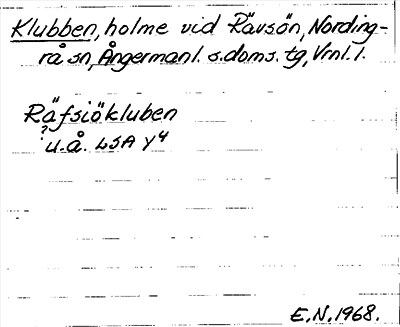 Klubben, holme vid Rävsön, Nording-
rå sn, Ångermanl. s. doms. tg, Vrnl. l.
Räfsiökluben
? u.å. LSA Y4
E.N. 1968.